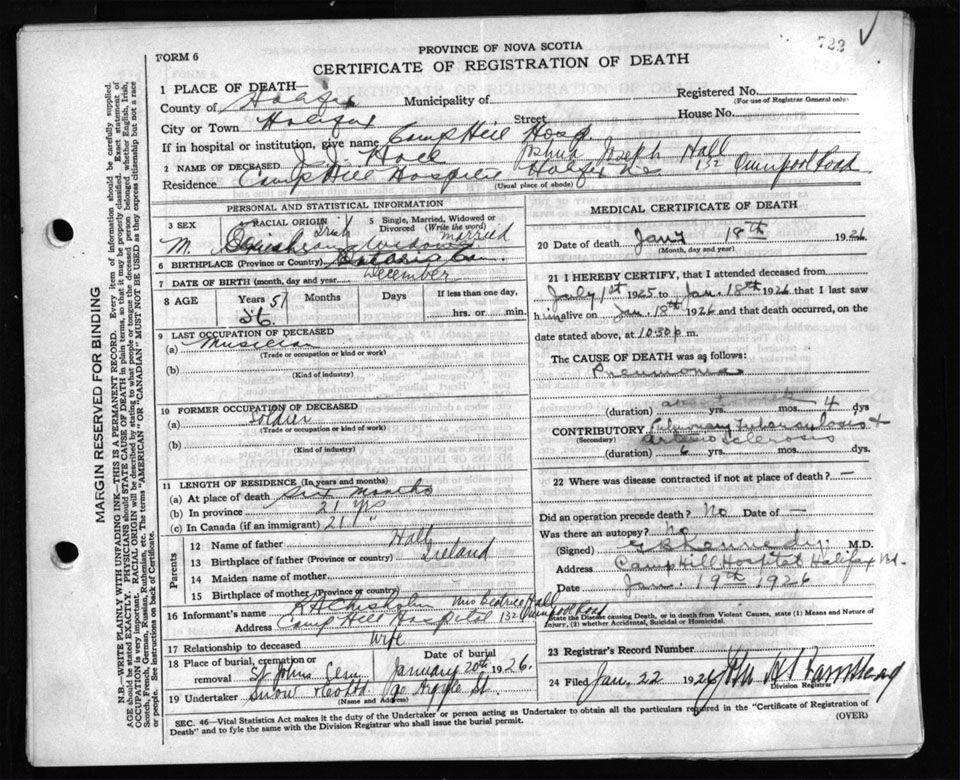 PROVINCE OF NOVA SCOTIA
723
FORM 6
CERTIFICATE OF REGISTRATION OF DEATH
1 PLACE OF DEATH—
County of Halifax Municipality of Registered No.
(For use of Registrar General only)
City or Town Halifax Street House No.
If in hospital or institution, give name Camp Hill Hosp.
2 NAME OF DECEASED J. J. Hall Joseph Hall
Residence Camp Hill Hospital Halifax N.S. 132 Quinpool Road
(Usual place of abode)
PERSONAL AND STATISTICAL INFORMATION
3 SEX M. 4 RACIAL ORIGIN Irish 5 Single, Married, Widowed or Divorced (Write the word) married
6 BIRTHPLACE (Province or Country)
7 DATE OF BIRTH (month, day and year) December
8 AGE Years 51 Months Days If less than one day,
hrs. or min.
9 LAST OCCUPATION OF DECEASED
(a) Musician
(Trade or occupation or kind or work)
(b)
(Kind of industry)
10 FORMER OCCUPATION OF DECEASED
(a) Soldier
(Trade or occupation or kind of work)
(b)
(Kind of industry)
11 LENGTH OF RESIDENCE (In years and months)
(a) At place of death Six months
(b) In province 21 yrs
(c) In Canada (if an immigrant) 21 "
Parents
12 Name of father Hall
13 Birthplace of father (Province or country) Ireland
14 Maiden name of mother
15 Birthplace of mother (Province or country)
16 Informant's name R H Chisholm Mrs Beatrice Hall
Address Camp Hill Hospital 132 Quinpool Road
17 Relationship to deceased Wife
18 Place of burial, cremation or removal St Johns Cem Date of burial January 20th 1926.
19 Undertaker Snow 90 Argyle St.
(Name and Address)
MEDICAL CERTIFICATE OF DEATH
20 Date of death Jany 18th 1926
(Month, day and year)
21 I HEREBY CERTIFY, that I attended deceased from
July 1st 1925 to Jan. 18th 1926 that I last saw
him alive on Jan. 18th 1926 and that death occurred, on the
date stated above, at 10.30 p m.
The CAUSE OF DEATH was as follows:
Pneumonia
(duration) yrs. mos. 4 dys
CONTRIBUTORY Pulmonary Tuberculosis +
(Secondary) Arterio Sclerosis
(duration) 6 yrs. mos. dys
22 Where was disease contracted if not at place of death? —
Did an operation precede death? No Date of —
Was there an autopsy? No
(Signed) Kennedy M.D.
Address Camp Hill Hospital Halifax
Date Jan. 19th 1926
State the Disease causing Death, or in death from Violent Causes, state (1) Means and Nature of
Injury, (2) whether Accidental, Suicidal or Homicidal.
23 Registrar's Record Number
24 Filed Jan. 22 1926 John
Division Registrar
SEC. 46—Vital Statistics Act makes it the duty of the Undertaker or person acting as Undertaker to obtain all the particulars required in the "Certificate of Registration of
Death" and to fyle the same with the Division Registrar who shall issue the burial permit.
(OVER)
MARGIN RESERVED FOR BINDING
N.B.—WRITE PLAINLY WITH UNFADING INK—THIS IS A PERMANENT RECORD. Every item of information should be carefully supplied.
AGE should be stated EXACTLY. PHYSICIANS should STATE CAUSE OF DEATH in plain terms, so that it may be properly classified. Exact statement of
OCCUPATION is very important. RACIAL ORIGIN will be described by stating to what people or tongue the deceased person belonged whether English, Irish,
Scotch, French, German, Russian, Ruthenian, etc. The terms "AMERICAN" OR "CANADIAN" MUST NOT BE USED as they express citizenship but not a race
or people. See instructions on back of Certificate.